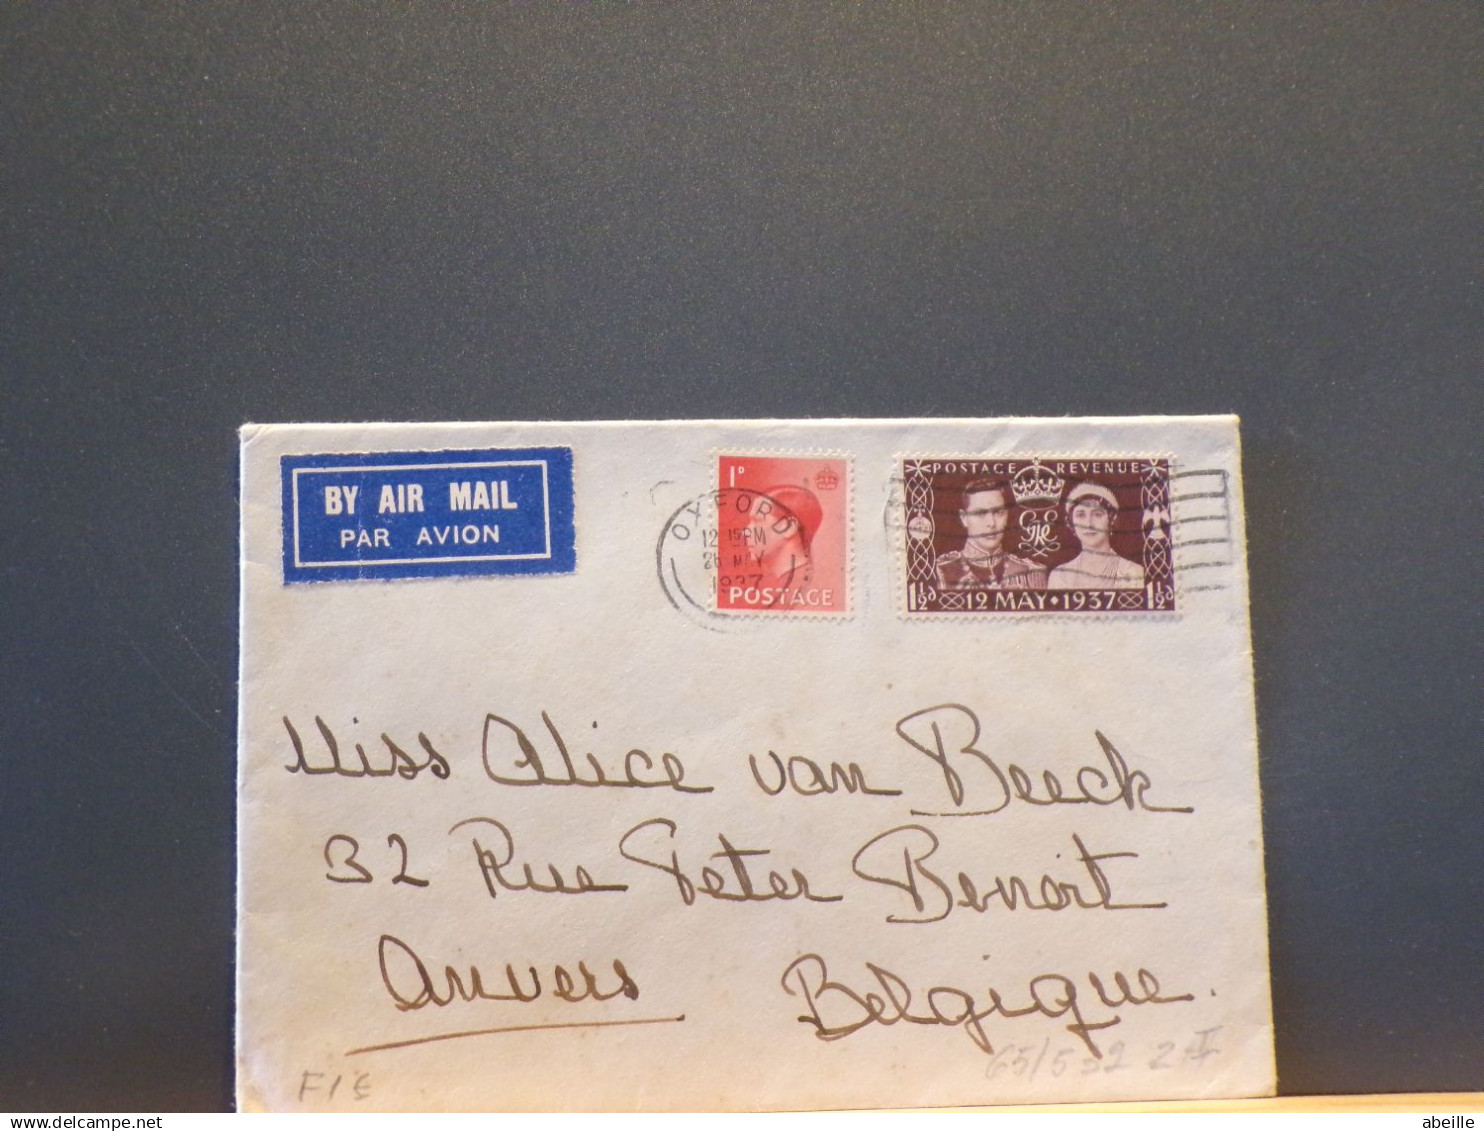 BY AIR MAIL
PAR AVION
1D
POSTAGE
OXFORD
12 15 PM
26 MAY
1937
POSTAGE REVENUE
1½d 12 MAY • 1937 1½d
Miss Alice van Beeck
32 Rue Peter Benoit
Anvers Belgique.
F1€
65/532 2
abeille